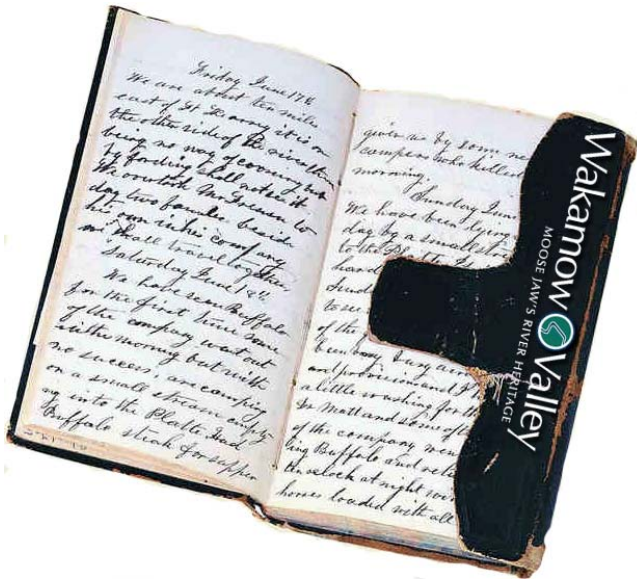 Friday June 17th
We are about ten miles
east of Ft Kearney it is on
the other side of the river there
being no way of crossing but
by fording shall not see it
We overtook Mr Freeman to
day two females beside
his own in his company
we shall travel together
Saturday June 18th
We have seen Buffalo
for the first time some
of the company went out
in the morning but with
no success, are camping
on a small stream empty
ing into the Platte Had
Buffalo steak for supper
given us by some ne
campers who killed
morning.
Sunday June
We have been lying
day by a small st
to the Platte
hard
to see
of the
been very busy air
and provisions and
a little washing for th
Dr Matt and some of
of the company wen
ting Buffalo and ret
Oneoclock at night wi
horses loaded with all
Wakamow Valley
MOOSE JAW'S RIVER HERITAGE